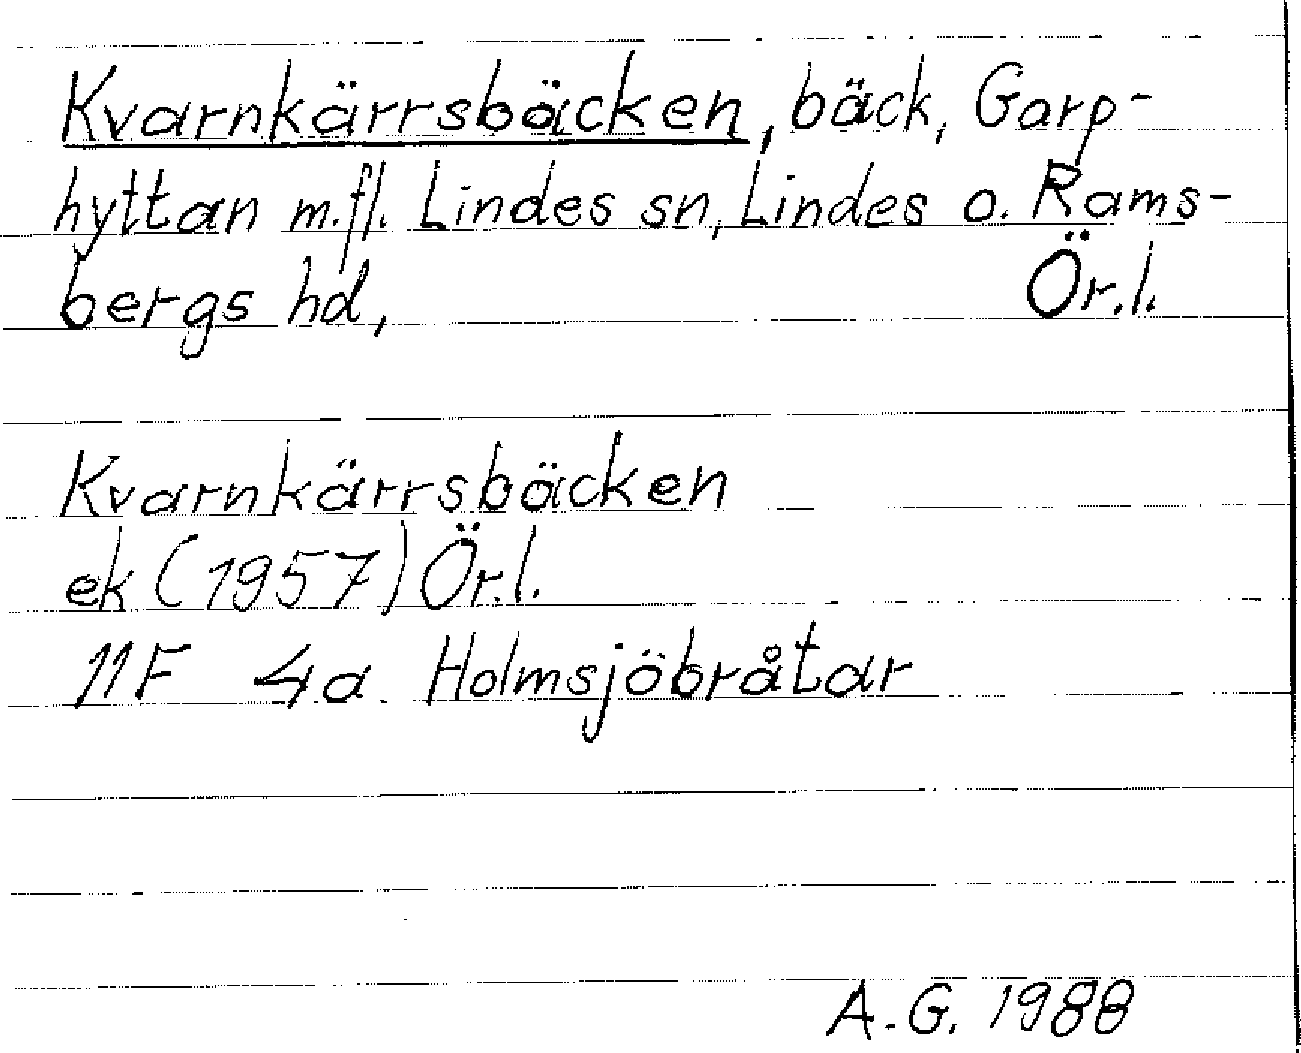 Kvarnkärrsbäcken, bäck, Garp-
hyttan m.fl. Lindes sn, Lindes o. Rams-
bergs hd, Ör.l.
Kvarnkärrsbäcken
ek (1957) Ör.l.
11F 4a Holmsjöbråtar
A.G. 1988